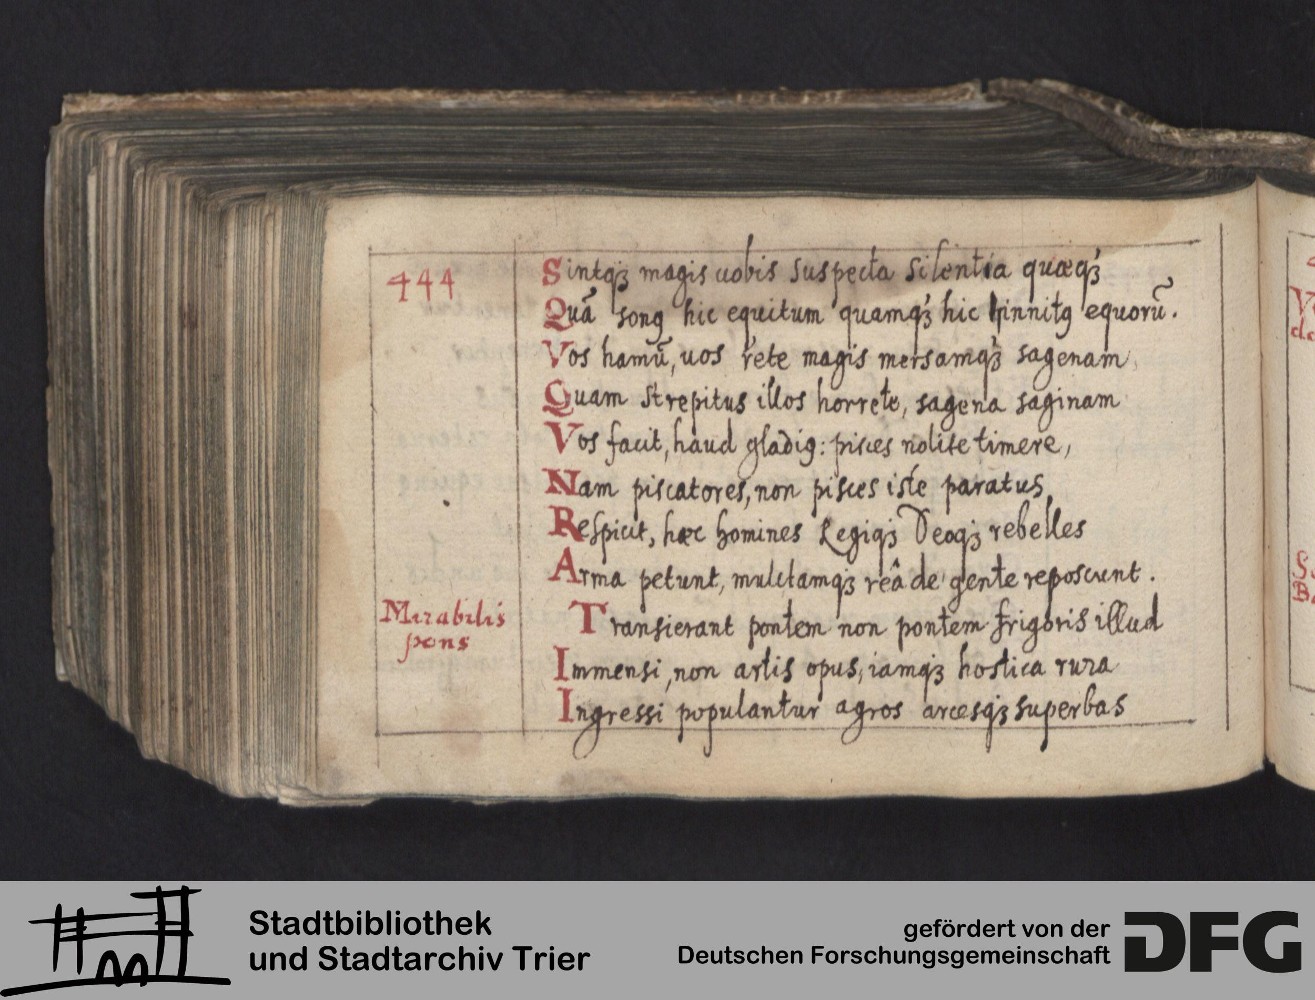 444
Sintq́ꝫ magis uobis suspecta silentia quæq́ꝫ
Quā sonꝯ hic equitum quamq́ꝫ hic hinnitꝯ equorū.
Vos hamū, uos rete magis mersamq́ꝫ sagenam,
Quam strepitus illos horrete, sagena saginam
Vos facit, haud gladiꝯ: pisces nolite timere,
Nam piscatores, non pisces iste paratus
Respicit, hæc homines Legiq́ꝫ Deoq́ꝫ rebelles
Arma petunt, mulctamq́ꝫ reâ de gente reposcunt.
Mirabilis
pons
Transierant pontem non pontem frigoris illud
Immensi, non artis opus, iamq́ꝫ hostica rura
Ingressi populantur agros arcesq́ꝫ superbas
Stadtbibliothek
und Stadtarchiv Trier
gefördert von der
Deutschen Forschungsgemeinschaft
DFG